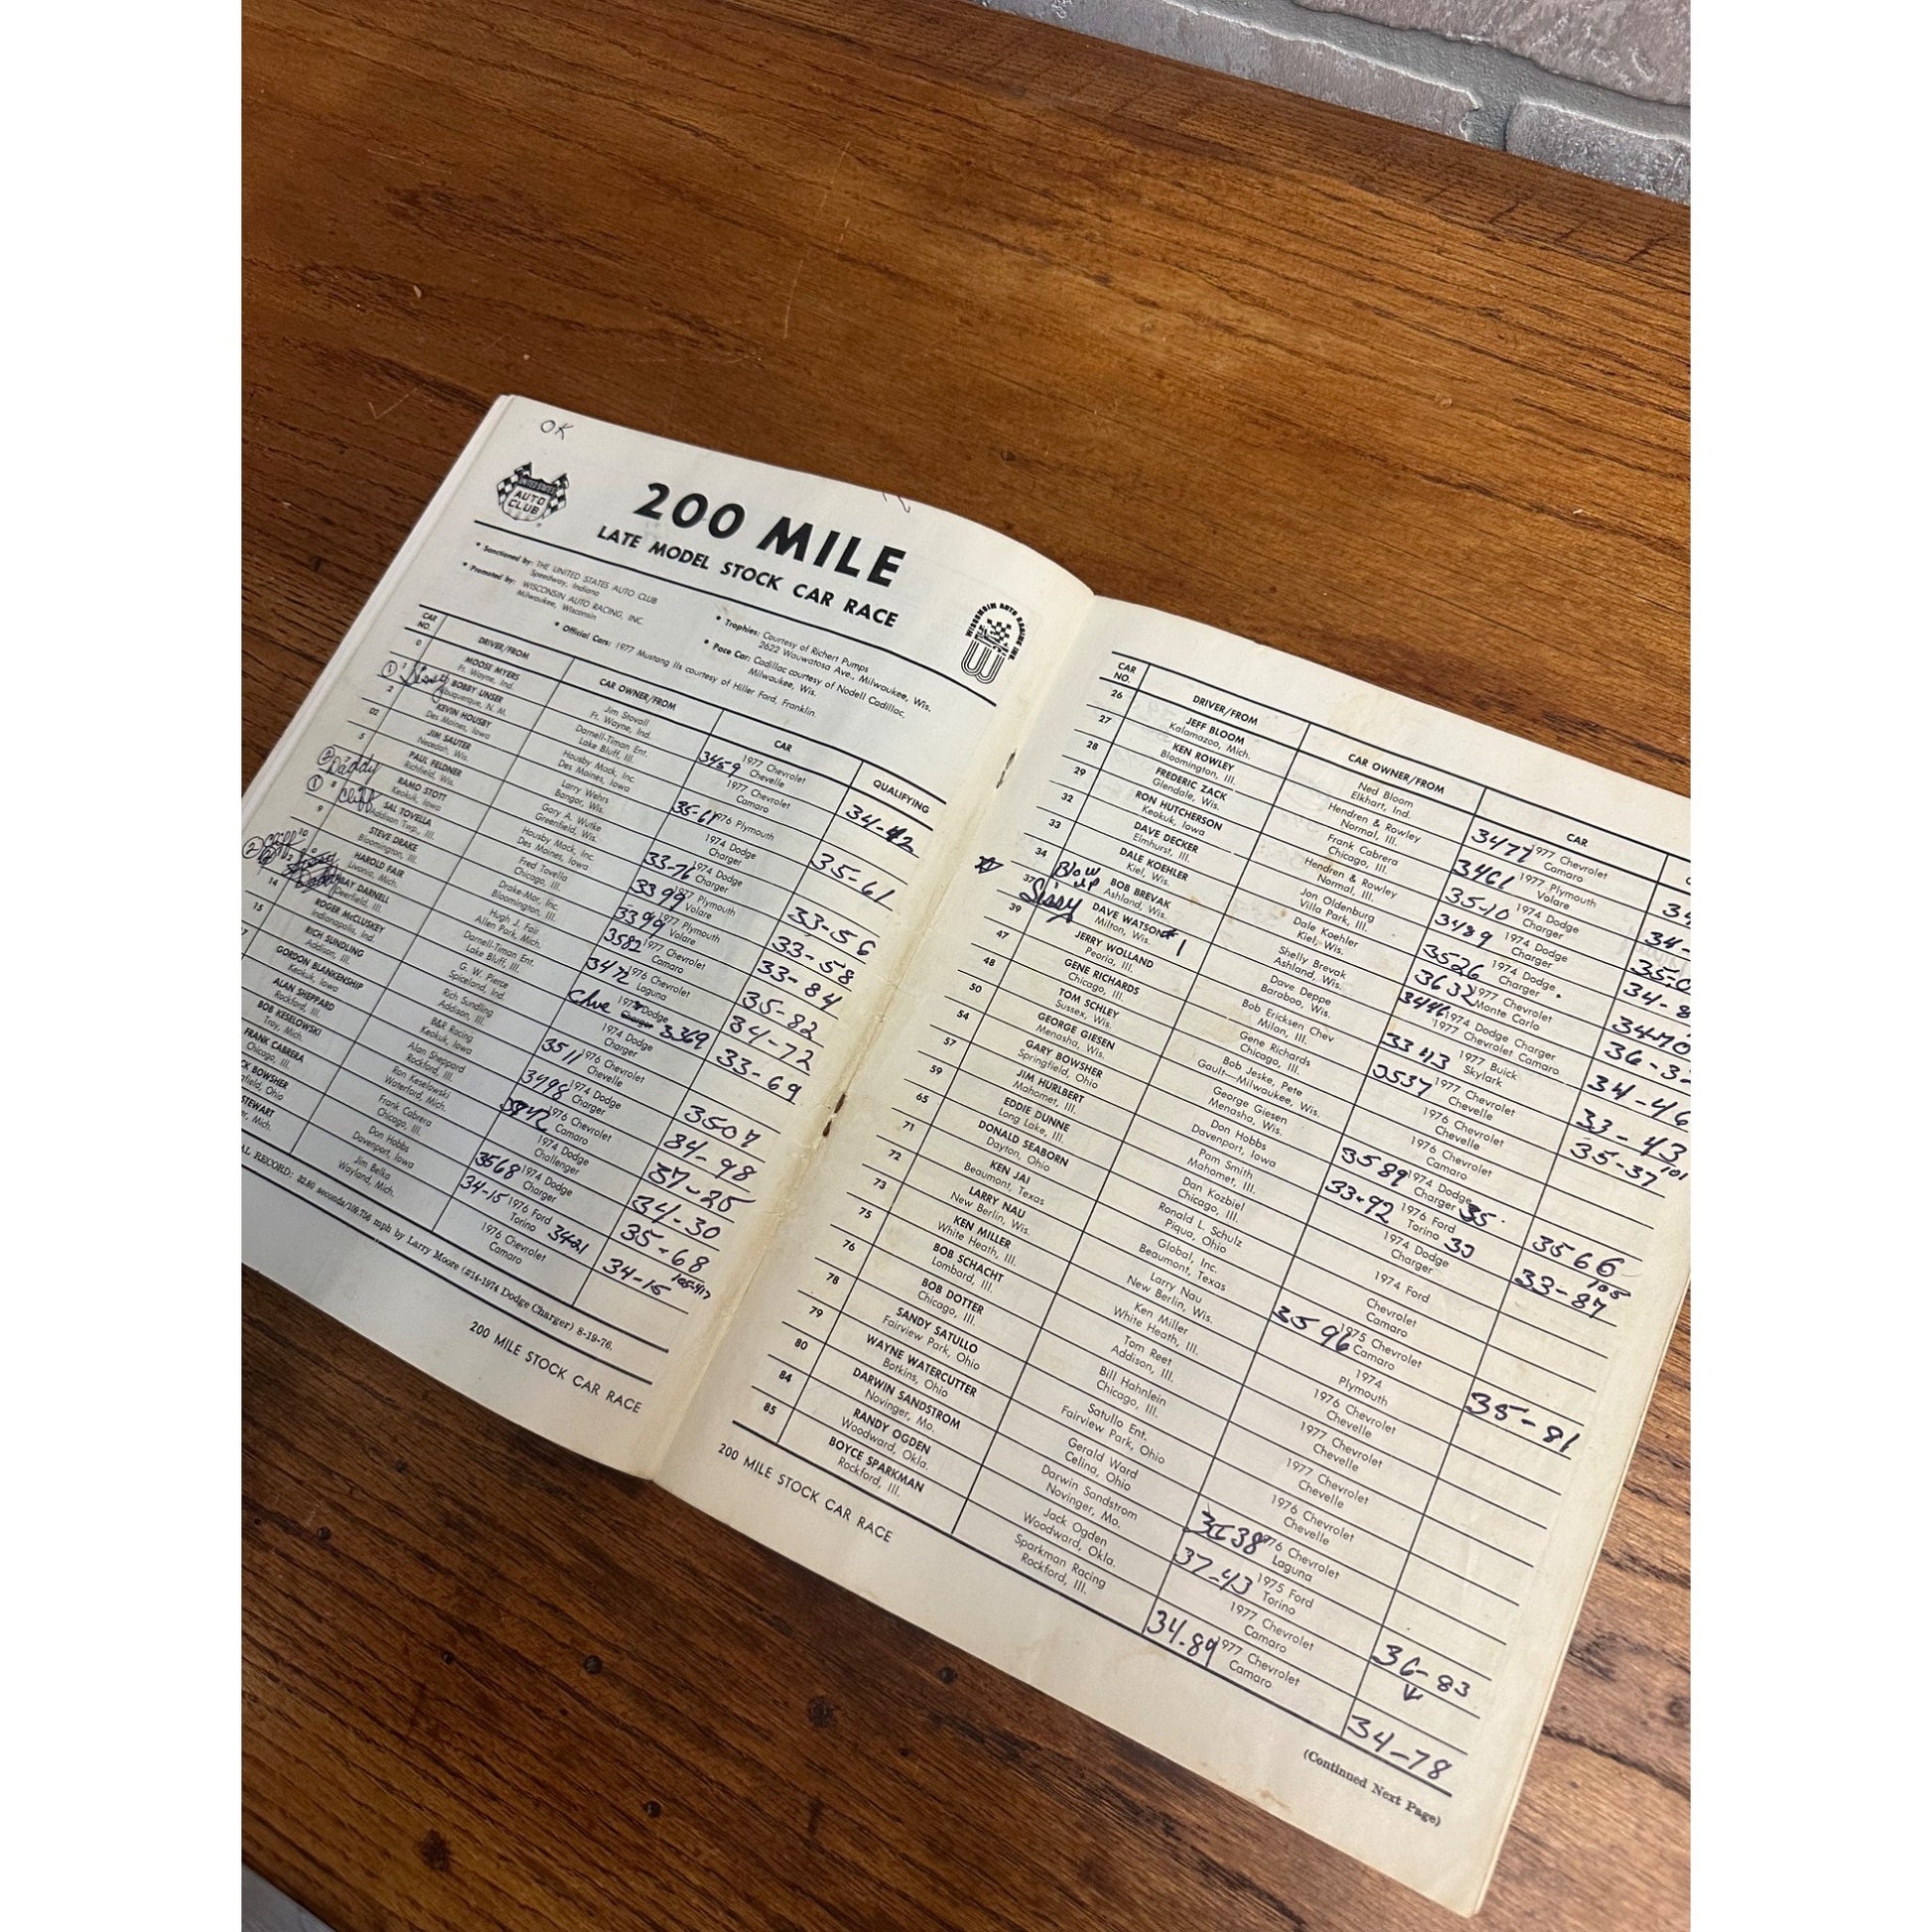 OK
UNITED STATES
AUTO
CLUB
200 MILE
LATE MODEL STOCK CAR RACE
WISCONSIN AUTO RACING INC.
* Sanctioned by: THE UNITED STATES AUTO CLUB
Speedway, Indiana
* Promoted by: WISCONSIN AUTO RACING, INC.
Milwaukee, Wisconsin
* Trophies: Courtesy of Richert Pumps
2622 Wauwatosa Ave., Milwaukee, Wis.
* Pace Car: Cadillac courtesy of Nodell Cadillac,
Milwaukee, Wis.
* Official Cars: 1977 Mustang IIs courtesy of Hiller Ford, Franklin
CAR NO. DRIVER/FROM CAR OWNER/FROM CAR QUALIFYING
0 MOOSE MYERS Jim Stovall 1977 Chevrolet
Ft. Wayne, Ind. Ft. Wayne, Ind. Chevelle
1 Sissy BOBBY UNSER Darnell-Timan Ent. 3459 1977 Chevrolet 34-42
Albuquerque, N. M. Lake Bluff, Ill. Camaro
2 KEVIN HOUSBY Housby Mack, Inc. 35-61 1976 Plymouth 35-61
Des Moines, Iowa Des Moines, Iowa
02 JIM SAUTER Larry Wehrs 1974 Dodge
Necedah, Wis. Bangor, Wis. Charger 33-56
5 PAUL FELDNER Gary A. Wutke 33-76 1974 Dodge
Richfield, Wis. Greenfield, Wis. Charger 33-58
2 Daddy RAMO STOTT Housby Mack, Inc. 3399 1977 Plymouth
Keokuk, Iowa Des Moines, Iowa Volare 33-84
1 8 Cliff SAL TOVELLA Fred Tovella 3399 1977 Plymouth
Addison Twp., Ill. Chicago, Ill. Volare
9 STEVE DRAKE Drake-Mor, Inc. 3582 1977 Chevrolet 35-82
Bloomington, Ill. Bloomington, Ill. Camaro
10 HAROLD FAIR Hugh J. Fair 3472 1976 Chevrolet 34-72
Livonia, Mich. Allen Park, Mich. Laguna
BAY DARNELL Darnell-Timan Ent. Dodge 3369 33-69
Deerfield, Ill. Lake Bluff, Ill. Charger
14 ROGER McCLUSKEY G. W. Pierce 1974 Dodge
Indianapolis, Ind. Spiceland, Ind. Charger
15 RICH SUNDLING Rich Sundling 3511 1976 Chevrolet 3507
Addison, Ill. Addison, Ill. Chevelle
GORDON BLANKENSHIP B&R Racing 3498 1974 Dodge 34-98
Keokuk, Iowa Keokuk, Iowa Charger
ALAN SHEPPARD Alan Sheppard 1976 Chevrolet 37-25
Rockford, Ill. Rockford, Ill. Camaro
BOB KESELOWSKI Ron Keselowski 1974 Dodge 34-30
Troy, Mich. Waterford, Mich. Challenger
FRANK CABRERA Frank Cabrera 3568 1974 Dodge 35-68
Chicago, Ill. Chicago, Ill. Charger
CK BOWSHER Don Hobbs 34-15 1976 Ford 34-15
field, Ohio Davenport, Iowa Torino 3421
STEWART Jim Belka 1976 Chevrolet
er, Mich. Wayland, Mich. Camaro
AL RECORD: 32.80 seconds/109.756 mph by Larry Moore (#14-1974 Dodge Charger) 8-19-76.
200 MILE STOCK CAR RACE
CAR NO. DRIVER/FROM CAR OWNER/FROM CAR
26 JEFF BLOOM Ned Bloom 3477 1977 Chevrolet
Kalamazoo, Mich. Elkhart, Ind. Camaro
27 KEN ROWLEY Hendren & Rowley 3461 1977 Plymouth
Bloomington, Ill. Normal, Ill. Volare
28 FREDERIC ZACK Frank Cabrera 35-10 1974 Dodge
Glendale, Wis. Chicago, Ill. Charger
29 RON HUTCHERSON Hendren & Rowley 3489 1974 Dodge
Keokuk, Iowa Normal, Ill. Charger
32 DAVE DECKER Jon Oldenburg 3526 1974 Dodge
Elmhurst, Ill. Villa Park, Ill. Charger
33 DALE KOEHLER Dale Koehler 3632 1977 Chevrolet
Kiel, Wis. Kiel, Wis. Monte Carlo
34 Blow up BOB BREVAK Shelly Brevak 3446 1974 Dodge Charger 34-46
Ashland, Wis. Ashland, Wis.
37 Sissy DAVE WATSON #1 Dave Deppe 3343 1977 Chevrolet Camaro 33-43
Milton, Wis. Baraboo, Wis.
39 JERRY WOLLAND Bob Ericksen Chev 3537 1977 Buick 35-37
Peoria, Ill. Milan, Ill. Skylark
47 GENE RICHARDS Gene Richards 1977 Chevrolet
Chicago, Ill. Chicago, Ill. Chevelle
48 TOM SCHLEY Bob Jeske, Pete 1976 Chevrolet
Sussex, Wis. Gault—Milwaukee, Wis. Chevelle
50 GEORGE GIESEN George Giesen 1976 Chevrolet
Menasha, Wis. Menasha, Wis. Camaro
54 GARY BOWSHER Don Hobbs 3589 1974 Dodge 3566
Springfield, Ohio Davenport, Iowa Charger 35
57 JIM HURLBERT Pam Smith 33-92 1976 Ford 33-87
Mahomet, Ill. Mahomet, Ill. Torino
59 EDDIE DUNNE Dan Kozbiel 1974 Dodge
Long Lake, Ill. Chicago, Ill. Charger
65 DONALD SEABORN Ronald L. Schulz 1974 Ford
Dayton, Ohio Piqua, Ohio
71 KEN JAI Global, Inc. Chevrolet
Beaumont, Texas Beaumont, Texas Camaro
72 LARRY NAU Larry Nau 3596 1975 Chevrolet 35-81
New Berlin, Wis. New Berlin, Wis. Camaro
73 KEN MILLER Ken Miller 1974
White Heath, Ill. White Heath, Ill. Plymouth
75 BOB SCHACHT Tom Reet 1976 Chevrolet
Lombard, Ill. Addison, Ill. Chevelle
76 BOB DOTTER Bill Hahnlein 1977 Chevrolet
Chicago, Ill. Chicago, Ill. Chevelle
78 SANDY SATULLO Satullo Ent. 1977 Chevrolet
Fairview Park, Ohio Fairview Park, Ohio Chevelle
79 WAYNE WATERCUTTER Gerald Ward 1976 Chevrolet
Botkins, Ohio Celina, Ohio Chevelle
80 DARWIN SANDSTROM Darwin Sandstrom 1976 Chevrolet 36-83
Novinger, Mo. Novinger, Mo. Laguna
84 RANDY OGDEN Jack Ogden 37-43 1975 Ford
Woodward, Okla. Woodward, Okla. Torino
85 BOYCE SPARKMAN Sparkman Racing 1977 Chevrolet
Rockford, Ill. Rockford, Ill. Camaro
34.89 1977 Chevrolet 34-78
Camaro
(Continued Next Page)
200 MILE STOCK CAR RACE